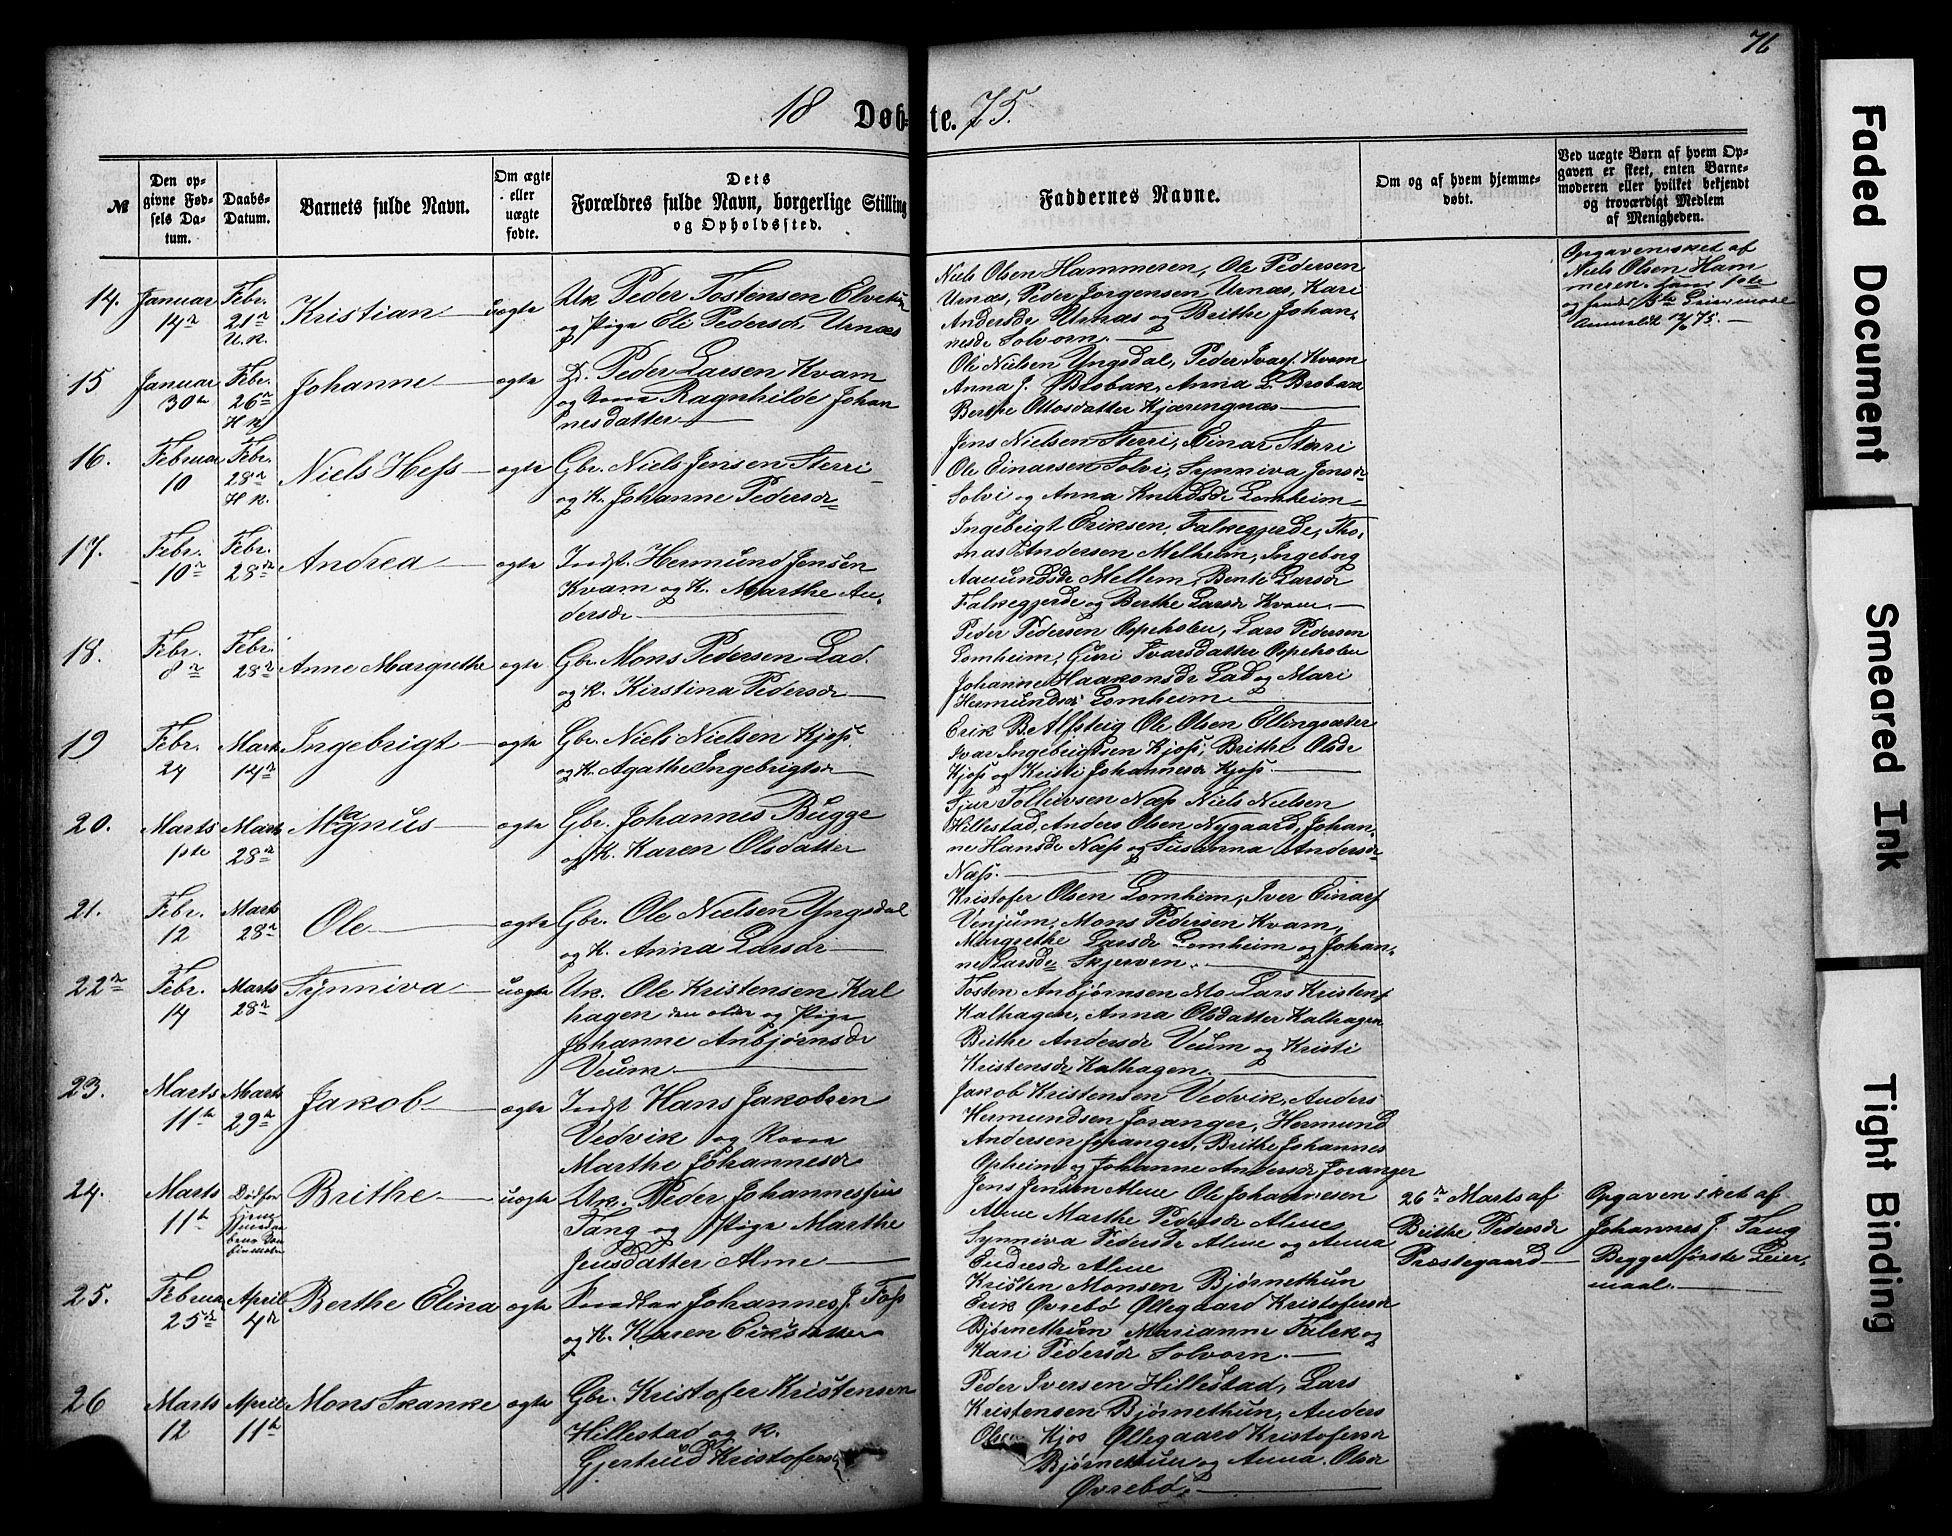 76
18 Døb- te. 75.
№
Den op-
givne Fød-
sels Da-
tum.
Daabs-
Datum.
Barnets fulde Navn.
Om ægte
eller
uægte
fødte.
Dets
Forældres fulde Navn, borgerlige Stilling
og Opholdssted.
Faddernes Navne.
Om og af hvem hjemme-
døbt.
Ved uægte Børn af hvem Op-
gaven er skeet, enten Barne-
moderen eller hvilket bekjendt
og troværdigt Medlem
af Menigheden.
14.
Januar
14n
Febr.
21n
U.K.
Kristian
uægte
Uk. Peder Tostensen
og Pige Eli Pedersdr Urnæs
Niels Olsen Hammeren, Ole Pedersen
Urnæs, Peder Jørgensen Urnæs, Kari
Andersdr Urnæs og Brithe Johan-
nesdr Solvorn.
Opgaven sket af
Niels Olsen Ham
meren. hans 1ste
og hendes Leiermaal
15
Januar
30te
Febr.
26n
H K
Johanne
ægte
Peder Larsen Kvam
og Ragnhilde Johan
nesdatter
Ole Nielsen Yngsdal, Peder Ivars. Kvam
Anna J. Ø Brobak, Anna L. Brobak
Berthe Ottosdatter Kjærengnæs
16.
Februar
10
Febr.
28n
H K.
Niels Hess
ægte
Gbr. Niels Jensen Sterri
og K. Johanne Pedersdr
Jens Nielsen Sterri, Einar Sterri
Ole Einarsen Solvi, Synniva Jensdr
Solvi og Anna Knudsdr Lomheim
17.
Febr.
10n
Febr.
28n
Andrea
ægte
Indst. Hermund Jensen
Kvam og K. Marthe An-
dersdr
Ingebrigt Eriksen Falkegjerde, Tho-
mas Andersen Melheim, Ingeborg
Aamundsdr Mellem, Benti Larsdr
Falkegjerde og Berthe Larsdr Kvam
18.
Febr.
8n
Febr.
28n
Anne Margrethe
ægte
Gbr. Mons Pedersen Lad
og K. Kirstina Pedersdr
Peder Pedersen Ospeholen, Lars Pedersen
Lomheim, Guri Ivarsdatter Ospeholen
Johanne Haakonsdr Lad og Mari
Hermundsdr Lomheim
19
Febr.
24
Marts
14n
Ingebrigt
ægte
Gbr. Niels Nielsen Kjoss
og K. Agathe Ingebrigtsdr
Erik B. Alfsteig Ole Olsen Ellingsæter
Ivar Ingebrigtsen Kjoss, Brithe Olsdr
Kjoss og Kristi Johannesdr Kjoss.
20.
Marts
1ste
Marts
28n
Magnus
ægte
Gbr. Johannes Bugge
og K. Karen Olsdatter
Tjur Tollevsen Næss Niels Nielsen
Hillestad, Anders Olsen Nygaard, Johan-
ne Hansdr Næss og Susanna Andersdr
Næss.
21.
Febr.
12
Marts
28n
Ole
ægte
Gbr. Ole Nielsen Yngsdal
og K. Anna Larsdr
Kristofer Olsen Lomheim, Iver Einars
Venjum, Mons Pedersen Kvam,
Margrethe Larsdr Lomheim og Johan-
ne Larsdr Skjerven.
22n
Febr.
14
Marts
28n
Synniva
uægte
Uk. Ole Kristensen Kal
hagen den ældr og Pige
Johanne Anbjørnsdr
Veum.
Tosten Anbjørnsen Mo Lars Kristens
Kalhagen, Anna Olsdatter Kalhagen
Brithe Andersdr Veum og Kristi
Kristensdr Kalhagen.
23.
Marts
11te
Marts
29n
Jakob
ægte
Indst Hans Jakobsen
Vedvik og Kone
Marthe Johannesdr
Jakob Kristensen Vedvik, Anders
Hermundsen Joranger, Hermund
Andersen Joranger, Brithe Johannes
Opheim og Johanne Andersdr Joranger
24.
Marts
11te
Brithe
uægte
Uk. Peder Johannessen
Tang og Pige Marthe
Jensdatter Alme
Jens Jensen Alme Ole Johannesen
Alme Marthe Pedersdr Alme
Synniva Pedersdr Alme og Anna
Endresdr Alme
26n Marts af
Brithe Pedersdr
Præstegaard
Opgaven sket af
Johannes J. Tang
Begges første Leier-
maal.
25.
Februar
25n
April
4n
Berthe Elina
ægte
Johannes J. Foss
og K. Karen Eriksdatter
Kristen Monsen Bjørnethun
Erik Øvrebø Øllegaard Kristofersdr
Bjørnethun Marianne Falck og
Kari Pedersdr Solvorn.
26
Marts
12
April
11te
Mons Skanke
ægte
Gbr. Kristofer Kristensen
Hillestad og K.
Gjertrud Kristofersdr
Peder Iversen Hillestad, Lars
Kristensen Bjørnethun, Anders
Olsen Kjos Øllegaard Kristofersdr
Bjørnethun og Anna Olsdr
Øvrebø
Faded Document
Smeared Ink
Tight Binding